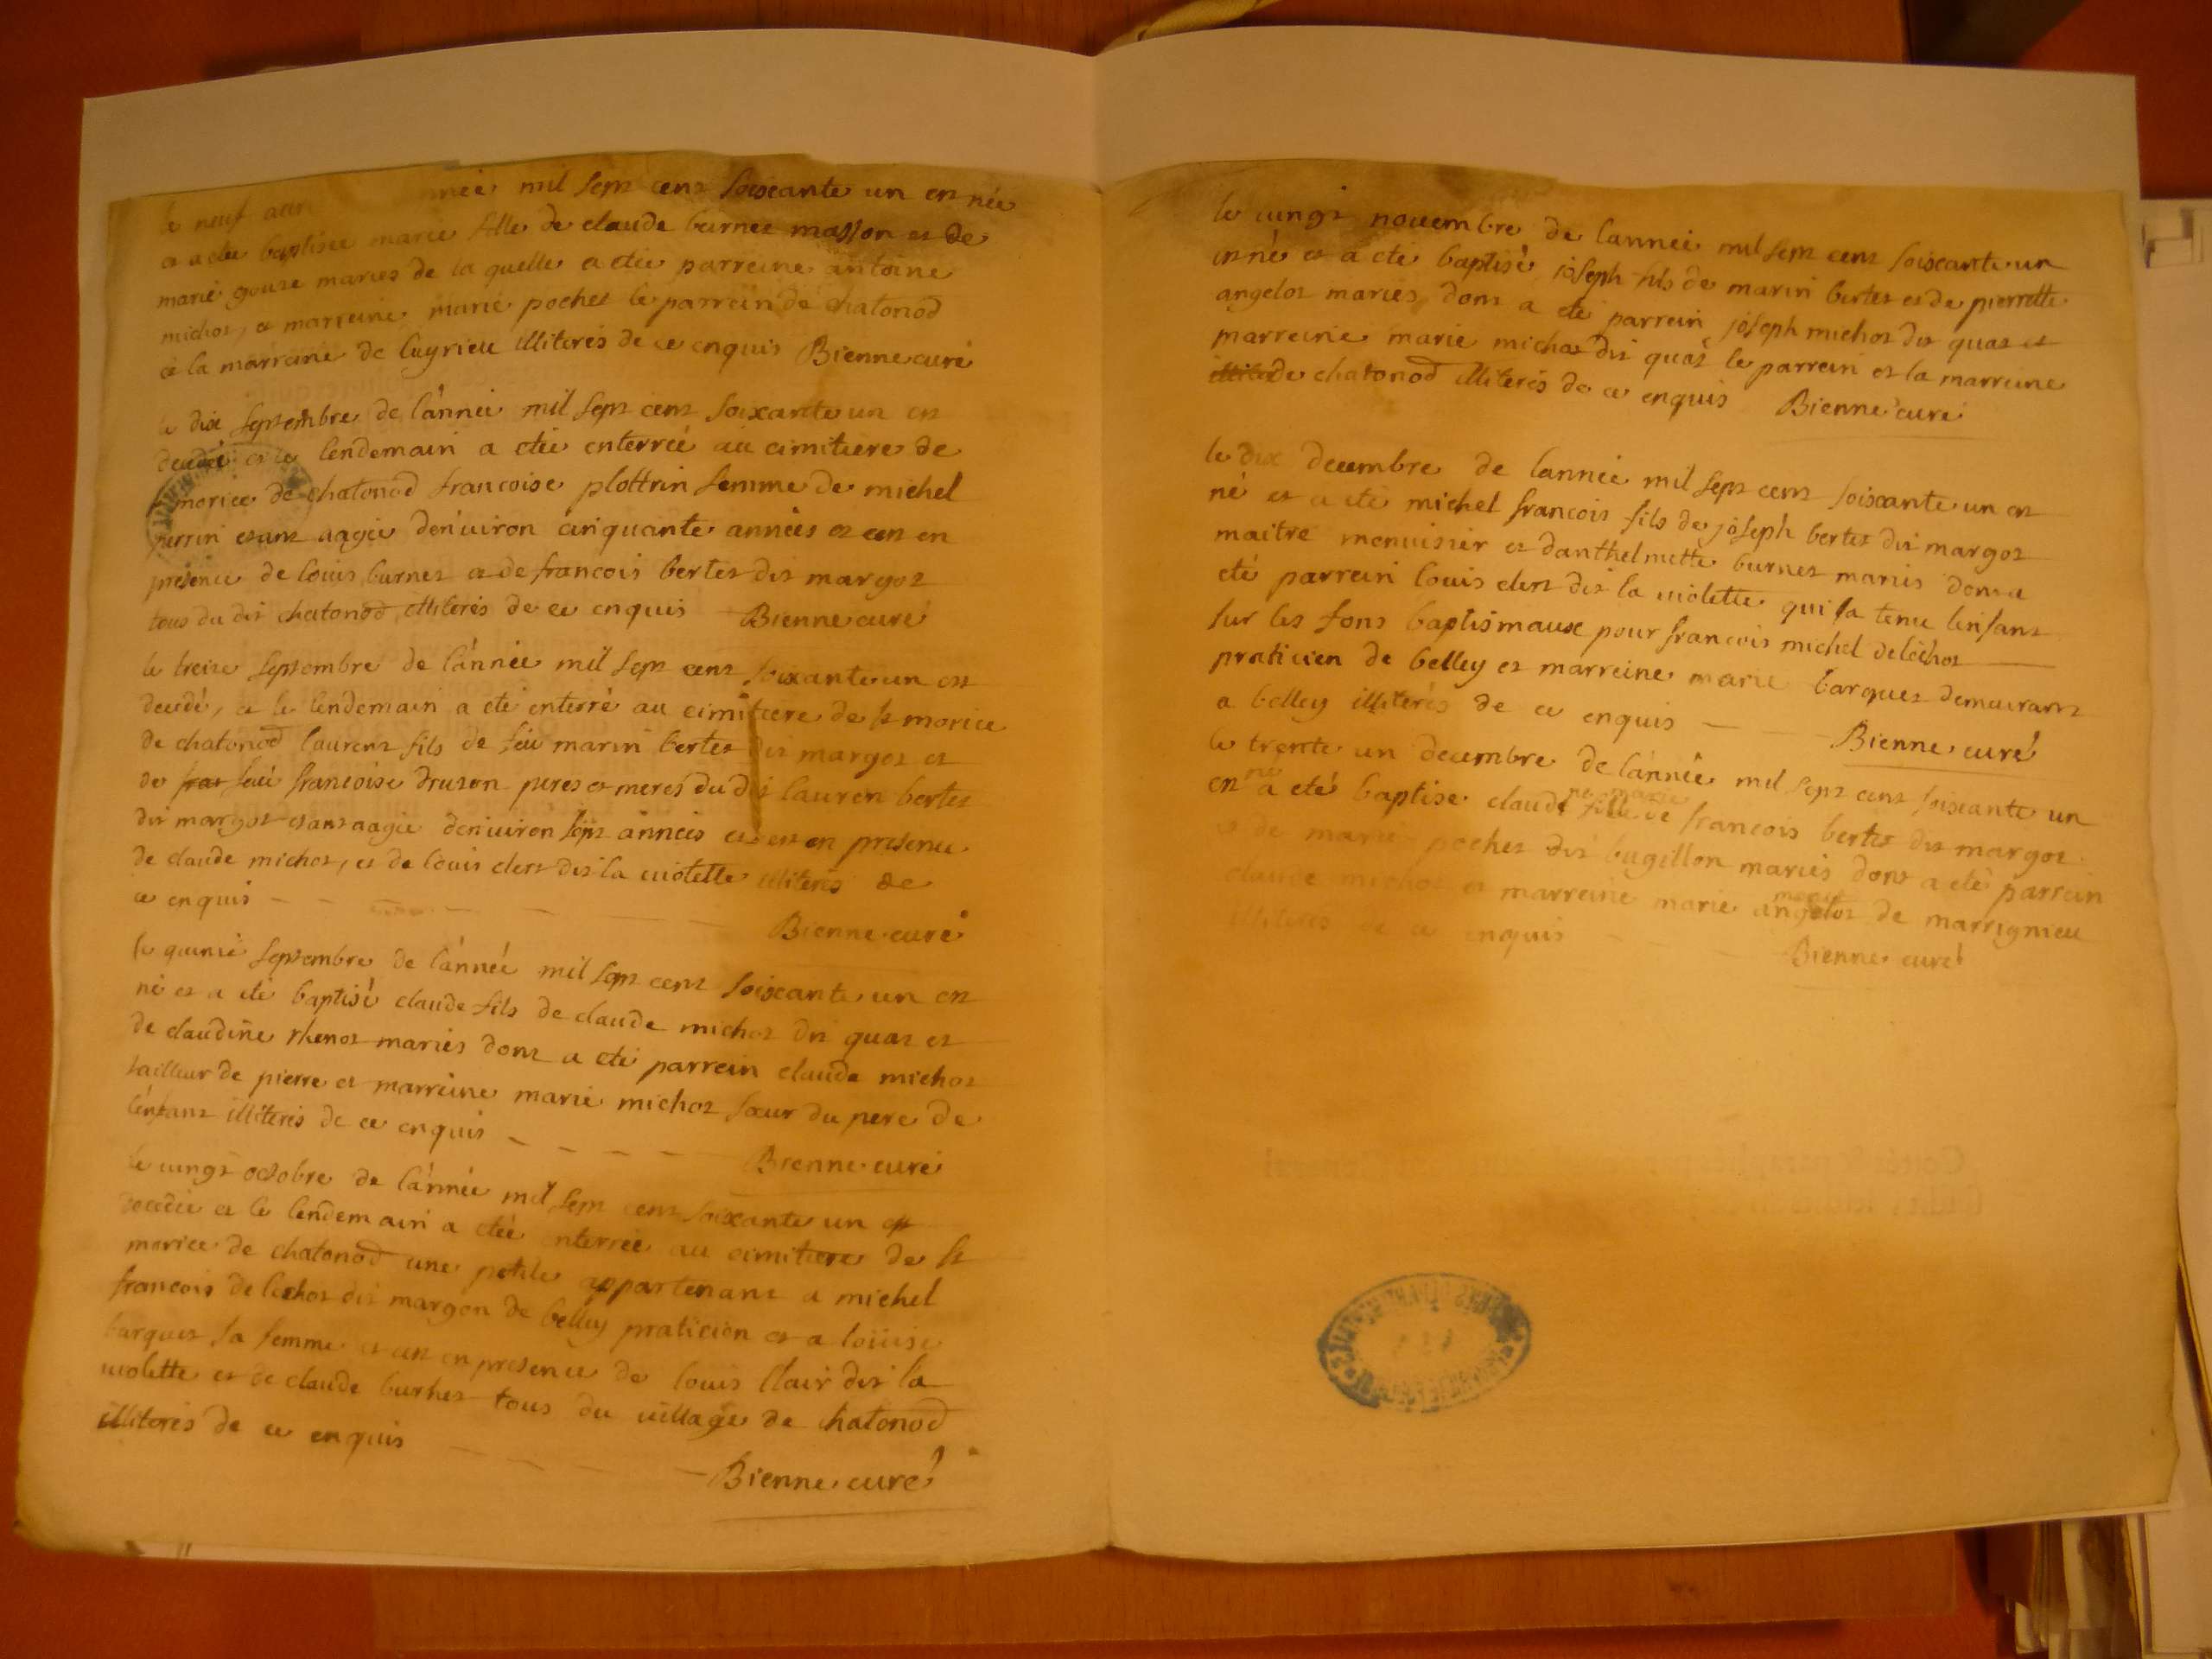 le neuf nnée mil sept cent soixante un est née
et a etée baptisée marie fille de claude burnet masson et de
marie gouze mariés de la quelle a etée parreine antoine
michot, et marreine marie pochet le parrein de chatonod
et la marreine de lugrieu illiterés de ce enquis Bienne curé
le dix septembre de l'année mil sept cent soixante un est
decedée et le lendemain a etée enterreé au cimitiere de
st morice de chatonod francoise plottrin femme de michel
perrin etant aagée den'uiron cinquante années et cen en
presence de louis burnet et de francois bertet dit margot
tous du dit chatonod illiterés de ce enquis Bienne curé
le treize septembre de l'année mil sept cent soixante un est
decedé, et le lendemain a eté enterré au cimitiere de st morice
de chatonod laurent fils de feu marin bertet dit margot et
de feüe francoise druzon peres et meres du dit lauren bertet
dit margot etant aagée den'uiron sept années et cen en presence
de claude michot, et de louis clert dit la uiolette illiterés de
ce enquis Bienne curé
le quinze septembre de l'année mil sept cent soixante un est
né et a eté baptisé claude fils de claude michot dit quat et
de claudine rhenot mariés dont a eté parrein claude michot
tailleur de pierre et marreine marie michot sœur du pere de
l'enfant illiterés de ce enquis Bienne curé
le uingt octobre de l'année mil sept cent soixante un est
decedée et le lendemain a etée enterrée au cimitiere de st
morice de chatonod une petite appartenant a michel
francois de lechot dit margon de belley praticien et a loüise
barquet sa femme et cen en presence de louis Clair dit la
uiolette et de claude burnet tous du uillage de chatonod
illiterés de ce enquis
Bienne curé
le uingt nouembre de lanneé mil sept cent soixante un
est né et a eté baptisé joseph fils de marin bertet et de pierrette
angelot mariés, dont a eté parrein joseph michot dit quat et
marreine marie michot dit quat le parrein et la marreine
de chatonod illiterés de ce enquis Bienne curé
le dix decembre de lanneé mil sept cent soixante un est
né et a eté michel francois fils de joseph bertet dit margot
maitre menuisier et danthelmette burnet mariés dont a
eté parrein louis clert dit la uiolette qui la tenu lenfant
sur les fons baptismaux pour francois michel deléchot
praticien de belley et marreine marie barquet demeurant
a belley illiterés de ce enquis Bienne curé
le trente un decembre de l'anneé mil sept cent soixante un
est né a eté baptisé claude marie fille de francois bertet dit margot
et de marie pochet dit bugillon mariés dont a eté parrein
claude michot et marreine marie angelot de marrignieu
illiterés de ce enquis
Bienne curé